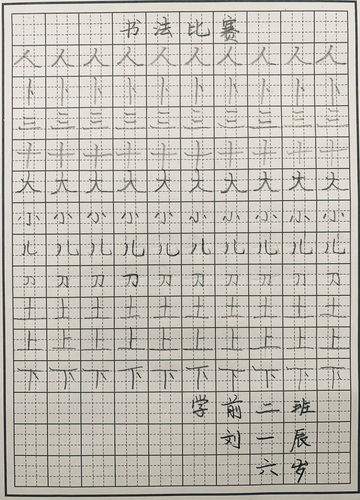 书法比赛
人人人人人人人人人人
卜卜卜卜卜卜卜卜卜卜
三三三三三三三三三三
十十十十十十十十十十
大大大大大大大大大大
小小小小小小小小小小
儿儿儿儿儿儿儿儿儿儿
刀刀刀刀刀刀刀刀刀刀
土土土土土土土土土土
上上上上上上上上上上
下下下下下下下下下下
学前二班
刘一辰
六岁